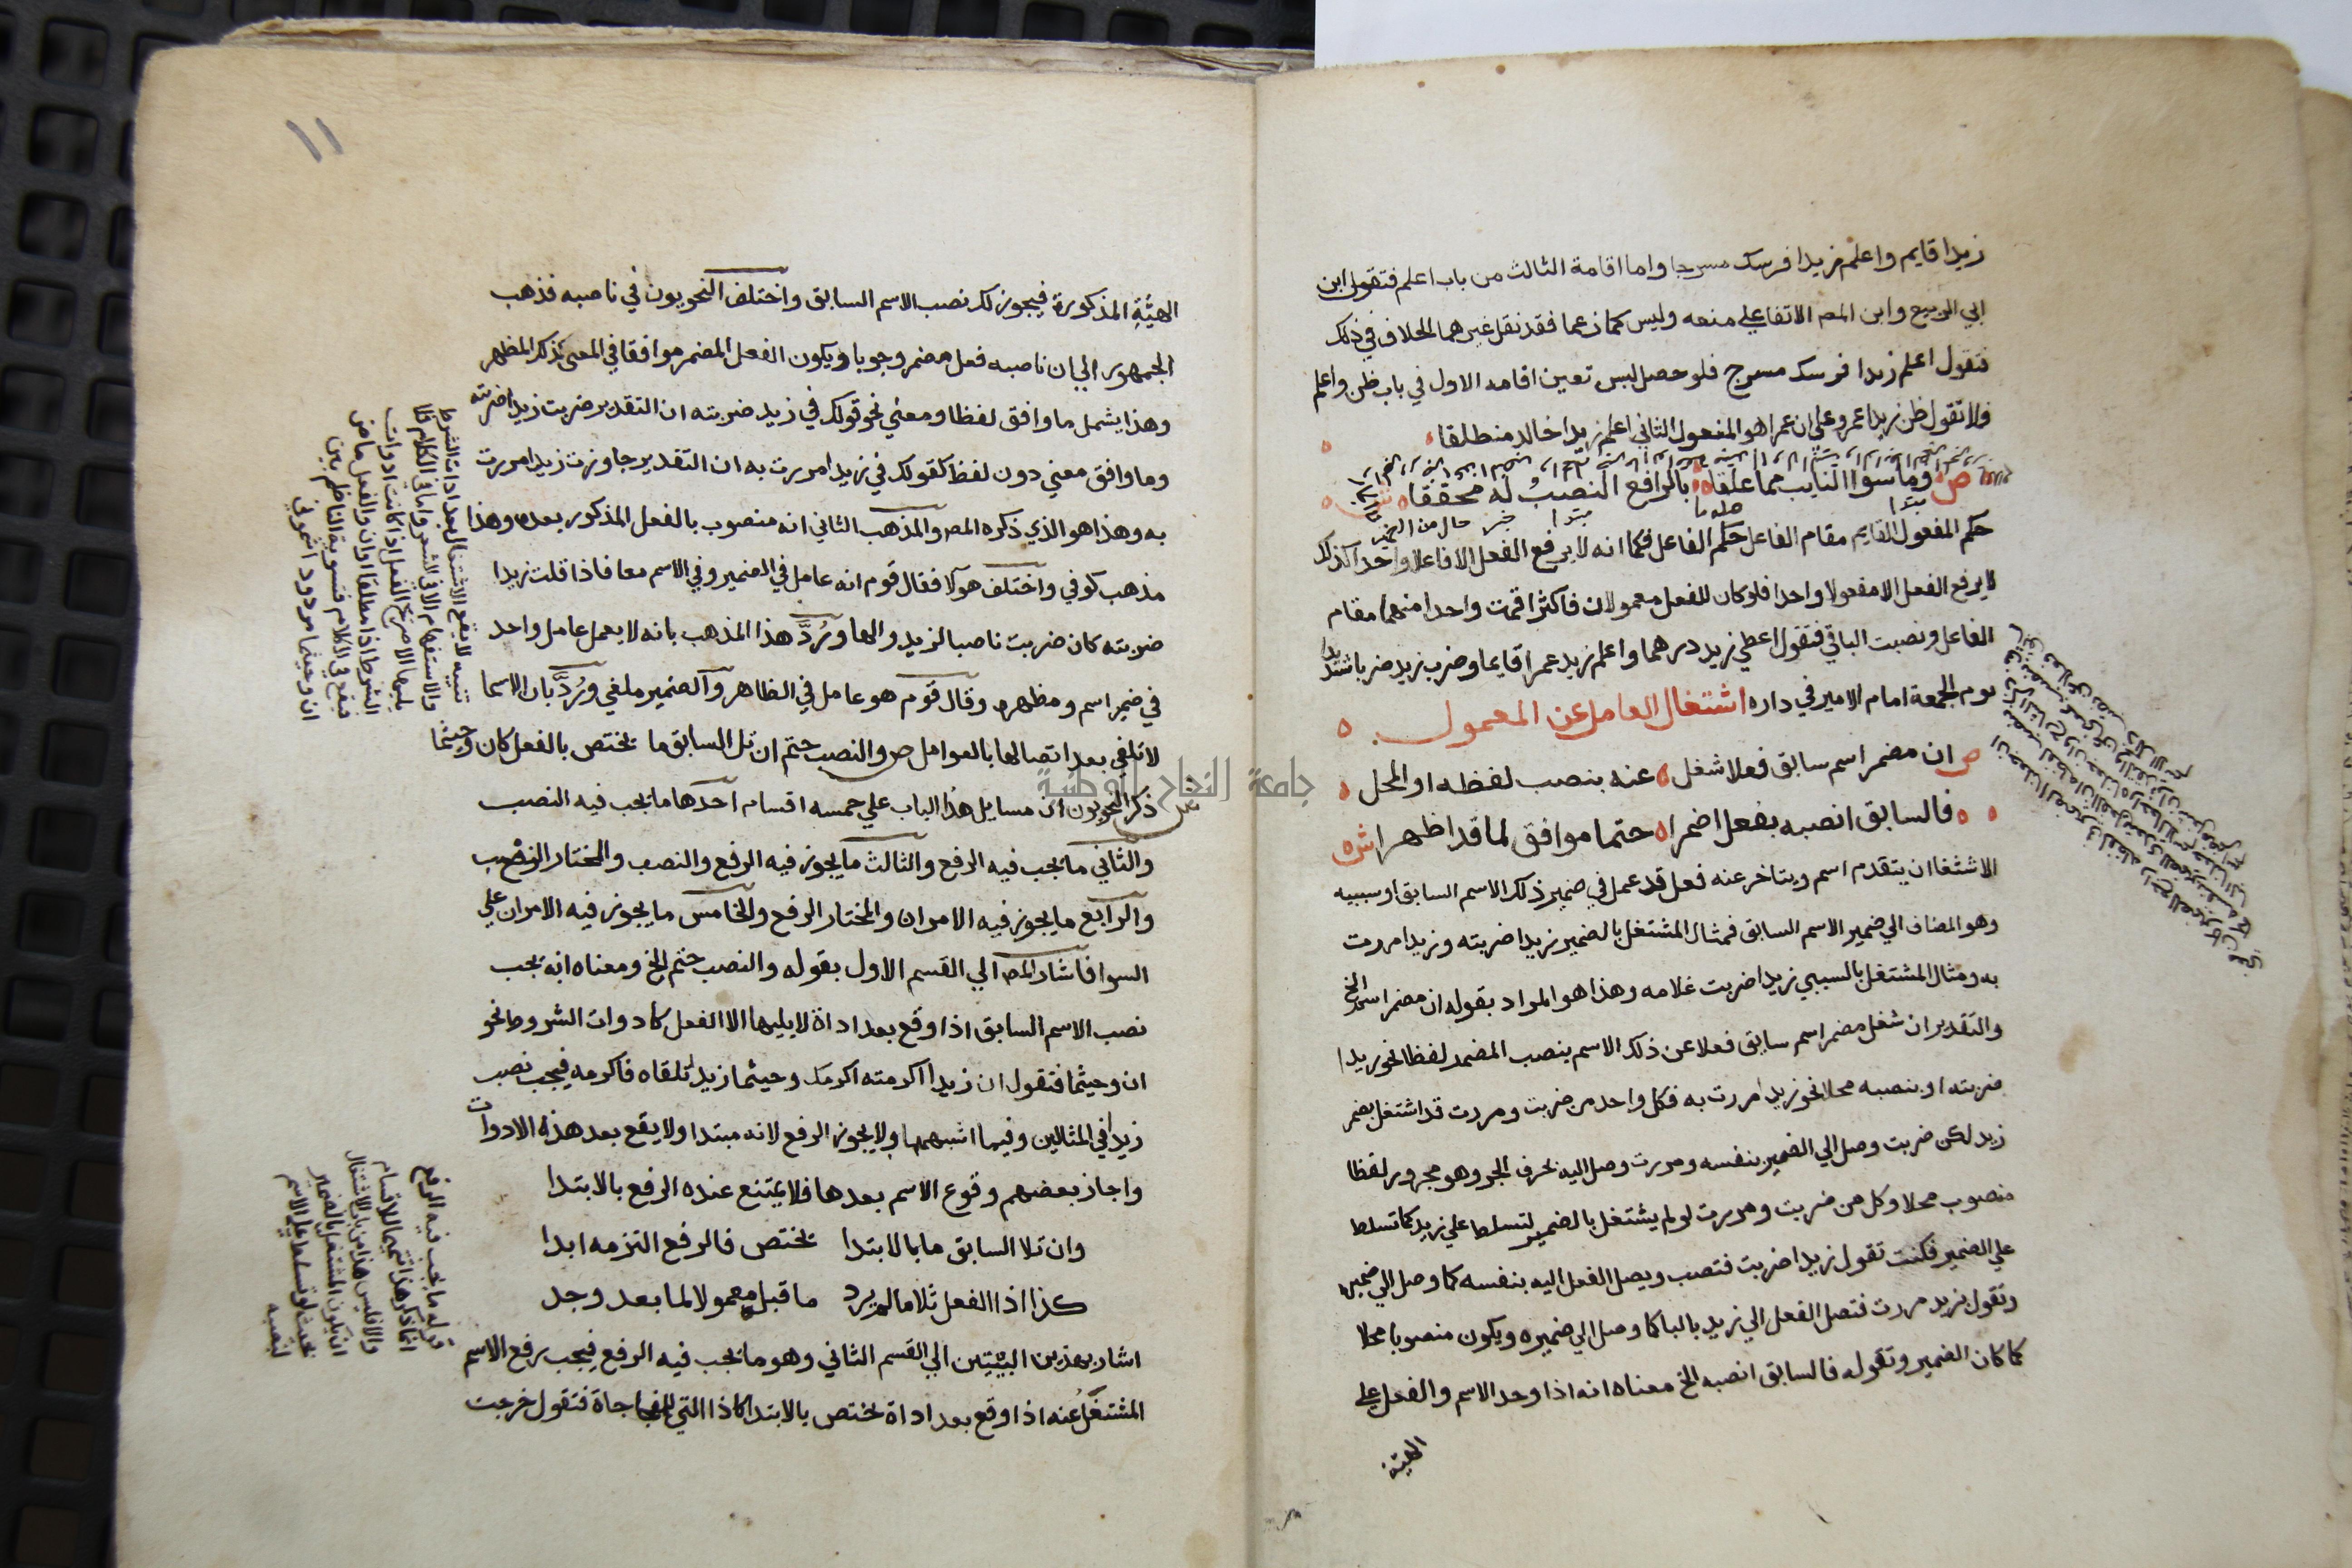 زيدا قايم واعلم زيدا فرسك مسرجا واما اقامة الثالث من باب اعلم فتقول ابن
ابي الربيع وابن المصـ الاتفاق علي منعه وليس كما زعما فقد نقل غيرهما الخلاف في ذلك
فتقول اعلم زيدا فرسك مسرج فلو حصل لبس تعين اقامه الاول في باب ظن واعلم
فلا تقول ظن زيدا عمرو علي ان عمرا هو المفعول الثاني اعلم زيدا خالد منطلقا
ص وما سوا النايب مما علقا بالرافع النصب له محققا ش
مبتدا صله ما مبتدا خبر حال من
حكم المفعول القايم مقام الفاعل حكم الفاعل فكما انه لا يرفع الفعل الا فاعلا واحدا كذلك
لا يرفع الفعل الا مفعولا واحدا فلو كان للفعل معمولان فاكثر اقمت واحدا منهما مقام
الفاعل ونصبت الباقي فتقول اعطي زيد درهما واعلم زيد عمرا قايما وضرب زيد ضربا شديدا
يوم الجمعة امام الامير في داره اشتغال العامل عن المعمول
ص ان مضمر اسم سابق فعلا شغل عنه بنصب لفظه او المحل
فالسابق انصبه بفعل اضمرا حتما موافق لما قد اظهرا ش
الاشتغا ان يتقدم اسم ويتاخر عنه فعل قد عمل في ضمير ذلك الاسم السابق او سببيه
وهو المضاف الي ضمير الاسم السابق فمثال المشتغل بالضمير زيدا ضربته وزيدا مررت
به ومثال المشتغل بالسببي زيدا ضربت غلامه وهذا هو المراد بقوله ان مضمر اسم الخ
والتقدير ان شغل مضمر اسم سابق فعلا عن ذلك الاسم بنصب المضمر لفظا نحو زيدا
ضربته او بنصبه محلا نحو زيدا مررت به فكل واحد من ضربت ومررت قد اشتغل بضمر
زيد لكن ضربت وصل الي الضمير بنفسه ومررت وصل اليه بحرف الجر وهو مجرور لفظا
منصوب محلا وكل من ضربت ومررت لو لم يشتغل بالضمير لتسلط علي زيد كما تسلط
علي الضمير فكنت تقول زيدا ضربت فتصب ويصل الفعل اليه بنفسه كما وصل الي ضميره
وتقول بزيد مررت فتصل الفعل الي زيد بالبا كما وصل الي ضميره ويكون منصوبا محلا
كما كان الضمير وتقوله فالسابق انصبه الخ معناه انه اذا وجد الاسم والفعل علي
الهيئة
١١
الهيئة المذكورة فيجوز لك نصب الاسم السابق واختلف النحويون في ناصبه فذهب
الجمهور الي ان ناصبه فعل مضمر وجوبا ويكون الفعل المضمر موافقا في المعني لذلك المظهر
وهذا يشمل ما وافق لفظا ومعني نحو قولك في زيد ضربته ان التقدير ضربت زيدا ضربته
وما وافق معني دون لفظ كقولك في زيدا مررت به ان التقدير جاوزت زيدا مررت
به وهذا هو الذي ذكره المصـ والمذهب الثاني انه منصوب بالفعل المذكور بعده وهذا
مذهب كوفي واختلف هولا فقال قوم انه عامل في الضمير وفي الاسم معا فاذا قلت زيدا
ضربته كان ضربت ناصبا لزيد والها ورُدَّ هذا المذهب بانه لا يعمل عامل واحد
في ضمير اسم ومظهره وقال قوم هو عامل في الظاهر والضمير ملغي ورُدَّ بان الاسما
لا تلغي بعد اتصالها بالعوامل ص والنصب حتم ان تل السابق ما يختص بالفعل كان وحيثما
ش ذكر النحويون ان مسايل هذا الباب علي خمسه اقسام احدها ما يجب فيه النصب
والثاني ما يجب فيه الرفع والثالث ما يجوز فيه الرفع والنصب والمختار النصب
والرابع ما يجوز فيه الامران والمختار الرفع والخامس ما يجوز فيه الامران علي
السوا فاشار المصـ الي القسم الاول بقوله والنصب حتم الخ ومعناه انه يجب
نصب الاسم السابق اذا وقع بعد اداة لا يليها الا الفعل كادوات الشرط نحو
ان وحيثما فتقول ان زيدا اكرمته اكرمك وحيثما زيدا تلقاه فاكرمه فيجب نصب
زيدا في المثالين وفيما اشبههما ولا يجوز الرفع لانه مبتدا ولا يقع بعد هذه الادوات
واجاز بعضهم وقوع الاسم بعدها فلا يمتنع عنده الرفع بالابتدا
وان تلا السابق ما بالابتدا يختص فالرفع التزمه ابدا
كذا اذا الفعل تلا ما لم يرد ما قبل معمولا لما بعد وجد
اشار بهذين البيتين الي القسم الثاني وهو ما يجب فيه الرفع فيجب رفع الاسم
المشتغل عنه اذا وقع بعد اداة تختص بالابتدا كاذا التي للمفاجاة فتقول خرجت
تنبيه لا يقع الاشتغال بعد ادات الشرط
والاستفهام الا في الشعر واما في الكلام فلا
يليها الا صريح الفعل اذا كانت ادوات
الشرط اذا مطلقا او ان والفعل ماض
فيقع في الكلام فتسوية الناظم بين
ان وحيثما مردود اشموني
قوله ما يجب فيه الرفع
انما ذكر هذا تتميما للاقسام
والا فليس هذا من باب الاشتغال
ان يكون المشتغل بالضمير
بحيث لو تسلط علي الاسم
لنصبه
جامعة النجاح الوطنية